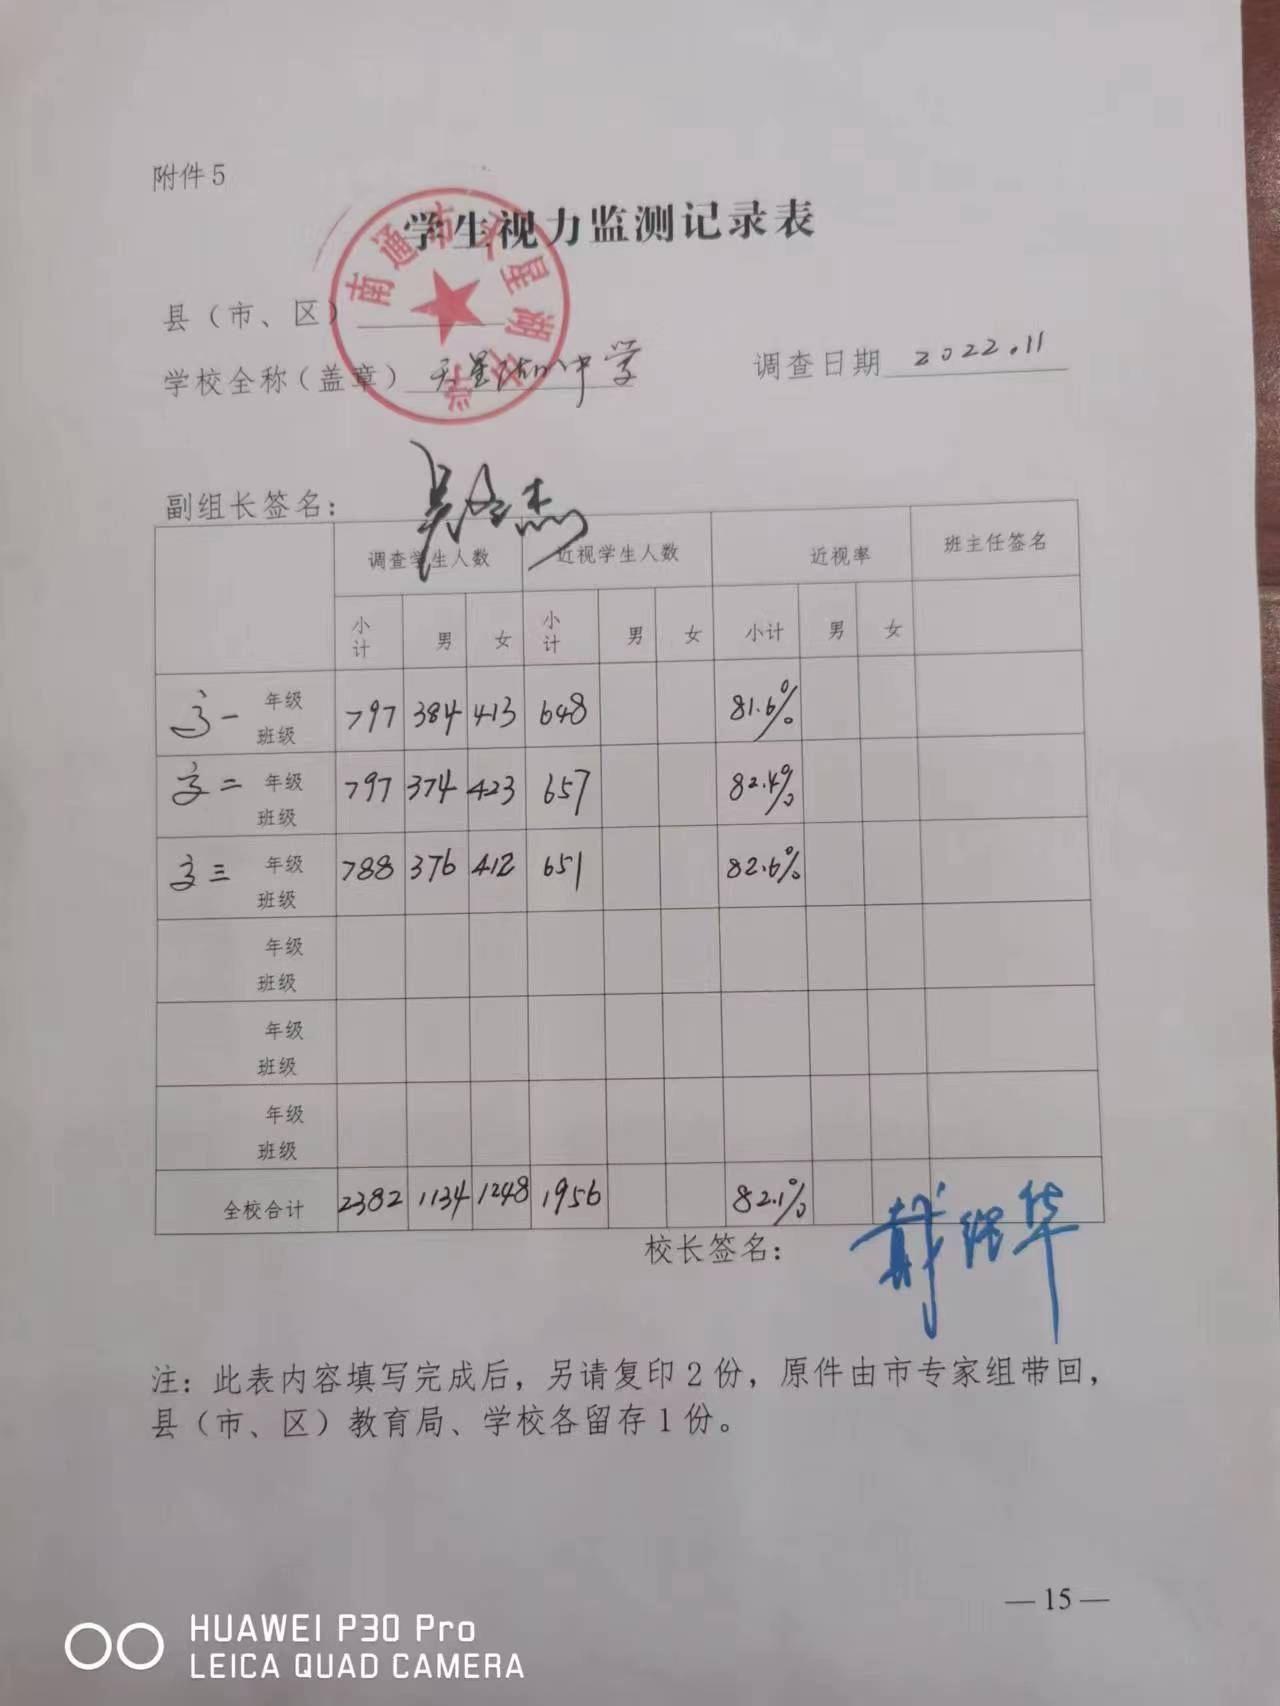 附件5
学生视力监测记录表
南通市天星湖中学
县（市、区）
学校全称（盖章） 天星湖中学 调查日期 2022.11
副组长签名：
调查学生人数 近视学生人数 近视率 班主任签名
小计 男 女 小计 男 女 小计 男 女
高一 年级 班级 797 384 413 648 81.6%
高二 年级 班级 797 374 423 657 82.4%
高三 年级 班级 788 376 412 651 82.6%
年级 班级
年级 班级
年级 班级
全校合计 2382 1134 1248 1956 82.1%
校长签名：
注：此表内容填写完成后，另请复印2份，原件由市专家组带回，
县（市、区）教育局、学校各留存1份。
— 15 —
HUAWEI P30 Pro
LEICA QUAD CAMERA